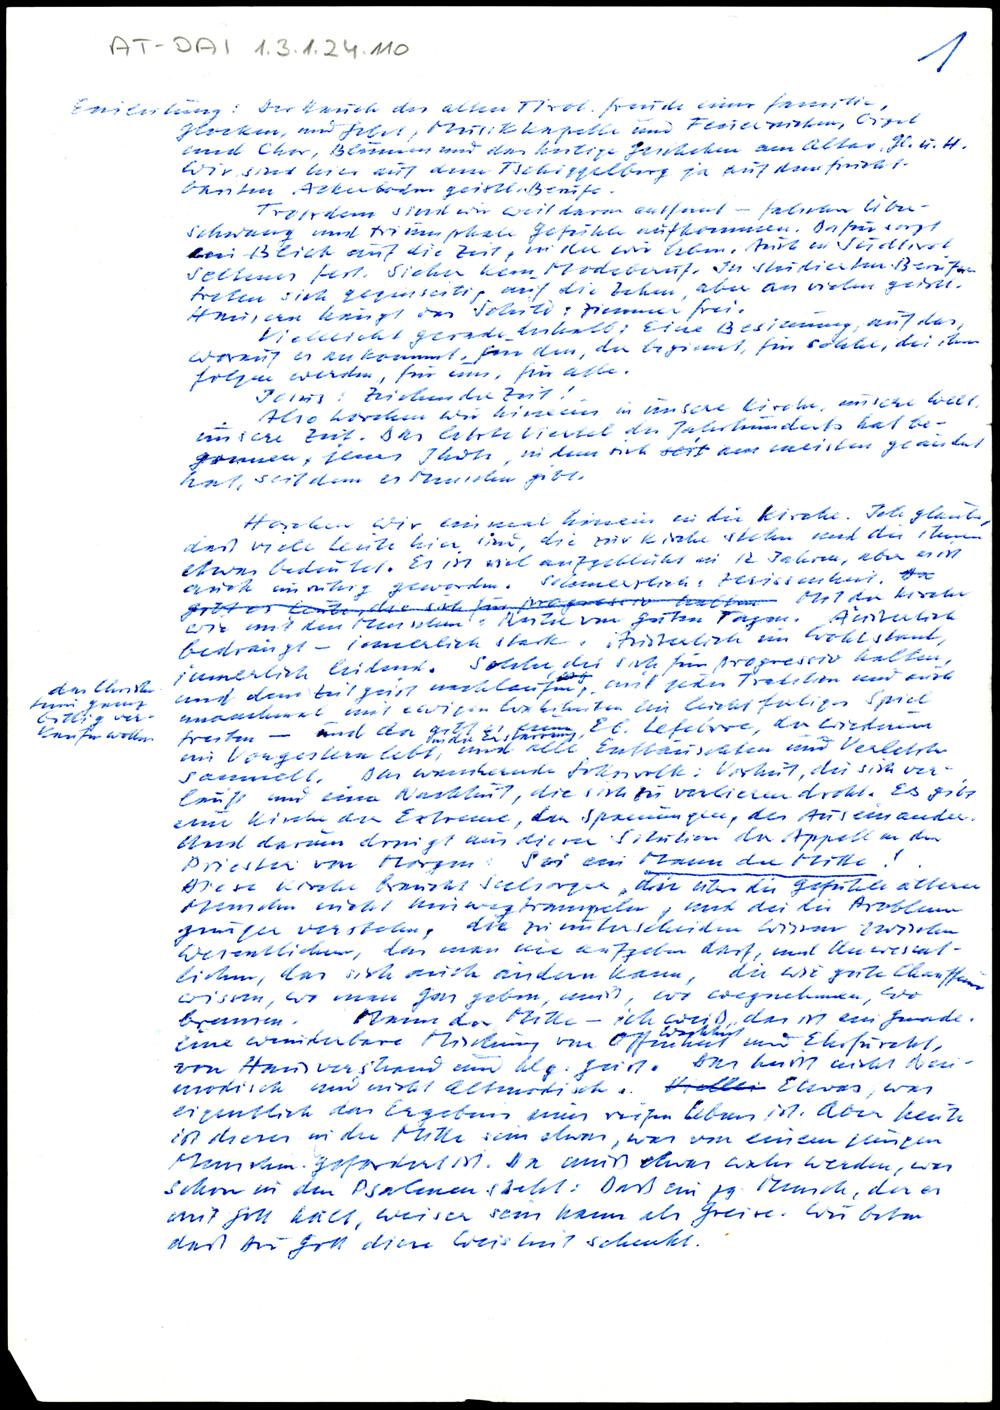 AT-DAI 1.3.1.24.110
1
Einleitung: Der Hauch des alten Tirol. Freude einer Familie,
Glocken, und Gebet, Musikkapelle und Feuerwehren, Orgel
und Chor, Blumen und das heilige Geschehen am Altar. Gl. u. H.
Wir sind hier auf dem Tschöggelberg ja auf dem frucht-
barsten Ackerboden geistl. Berufe.
Trotzdem sind wir weit davon entfernt – falschen Über-
schwang und triumphale Gefühle aufkommen. Dafür sorgt
ein Blick auf die Zeit, in der wir leben. Auch in Südtirol
seltenes Fest. Sicher kein Modeberuf. In studierten Berufen
treten sich gegenseitig auf die Zehen, aber an vielen geistl.
Häusern hängt das Schild: Zimmer frei.
Vielleicht gerade deshalb: Eine Besinnung, auf das,
worauf es ankommt, für den, der beginnt, für solche, die ihm
folgen werden, für uns, für alle.
Jesus: Zeichen der Zeit!
Also horchen wir hinein in unsere Kirche, unsere Welt,
unsere Zeit. Das letzte Viertel des Jahrhunderts hat be-
gonnen, jenes Jhdts, in dem sich seit am meisten geändert
hat, seitdem es Menschen gibt.
Horchen wir einmal hinein in die Kirche. Ich glaube,
daß viele Leute hier sind, die zur Kirche stehen und die ihnen
etwas bedeutet. Es ist viel aufgeblüht in 12 Jahren, aber es ist
auch unruhig geworden. Schmerzlich: Zerissenheit. Da
gibt es Leute, die sich für progressiv halten Mit der Kirche
wie mit den Menschen: Reihe von guten Tagen. Äußerlich
bedrängt – innerlich stark. Äußerlich im Wohlstand,
innerlich leidend. Solche, die sich für progressiv halten,
und dem Zeitgeist nachlaufen, mit jeder Tradition und auch
das Christen-
tum ganz
billig ver-
kaufen wollen
manchmal mit ewigen Wahrheiten ein leichtfertiges Spiel
treiben – und da gibt es einen EB. Lefebvre, der wiederum
in der Erstarrung
im Vorgestern lebt, und alle Enttäuschten und Verletzten
sammelt. Das wandernde Gottesvolk: Vorhut, die sich ver-
läuft und eine Nachhut, die sich zu verlieren droht. Es gibt
eine Kirche der Extreme, der Spannungen, des Auseinander.
Und darum dringt aus dieser Situation der Appell an den
Priester von Morgen: Sei ein Mann der Mitte!
Diese Kirche braucht Seelsorger, die über die Gefühle älterer
Menschen nicht hinwegtrampeln, und die die Probleme
junger verstehen, die zu unterscheiden wissen zwischen
Wesentlichem, das man nie aufgeben darf, und Unwesent-
lichem, das sich auch ändern kann, die wie gute Chauffeure
wissen, wo man Gas geben, muß, wo wegnehmen, wo
bremsen. Mann der Mitte – ich weiß, das ist ein Gnade.
Eine wunderbare Mischung von Offenheit und Ehrfurcht,
von Hausverstand und hlg. Geist. Das heißt nicht Neu-
modisch und nicht Altmodisch. Etwas, was
eigentlich das Ergebnis eines reifen Lebens ist. Aber heute
ist dieses in der Mitte sein etwas, was von einem jungen
Menschen gefordert ist. Da muß etwas wahr werden, was
schon in den Psalmen steht: Daß ein jg. Mensch, der es
mit Gott hält, weiser sein kann als Greise. Wir beten
daß Dir Gott diese Weisheit schenkt.